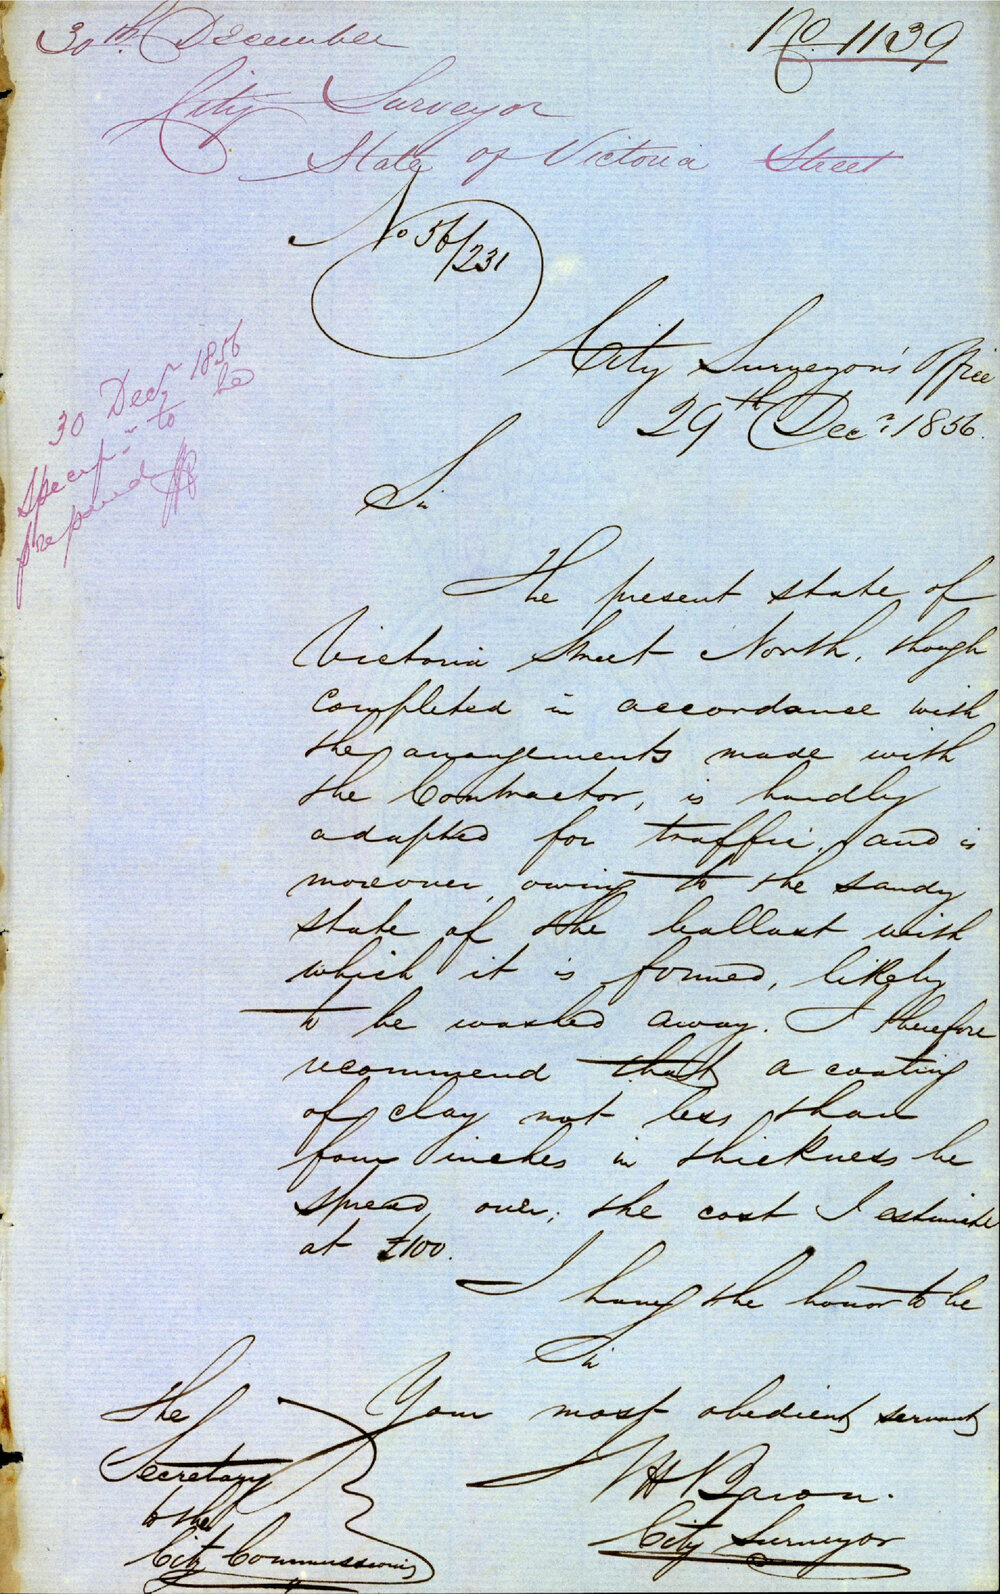 30th December
No. 1139
City Surveyor
State of Victoria Street
No 56/231
City Surveyor's Office
29th Decr. 1856.
30 Decr 1856
Specifn. to be
prepared
Sir
The present state of
Victoria Street North, though
completed in accordance with
the arrangements made with
the Contractor, is hardly
adapted for traffic, and is
moreover, owing to the sandy
state of the ballast with
which it is formed, likely
to be washed away. I therefore
recommend that a coating
of clay not less than
four inches in thickness be
spread over; the cost I estimate
at £100.
I have the honor to be
Sir
Your most obedient servant
Baron.
City Surveyor
The
Secretary
to the
City Commissioners